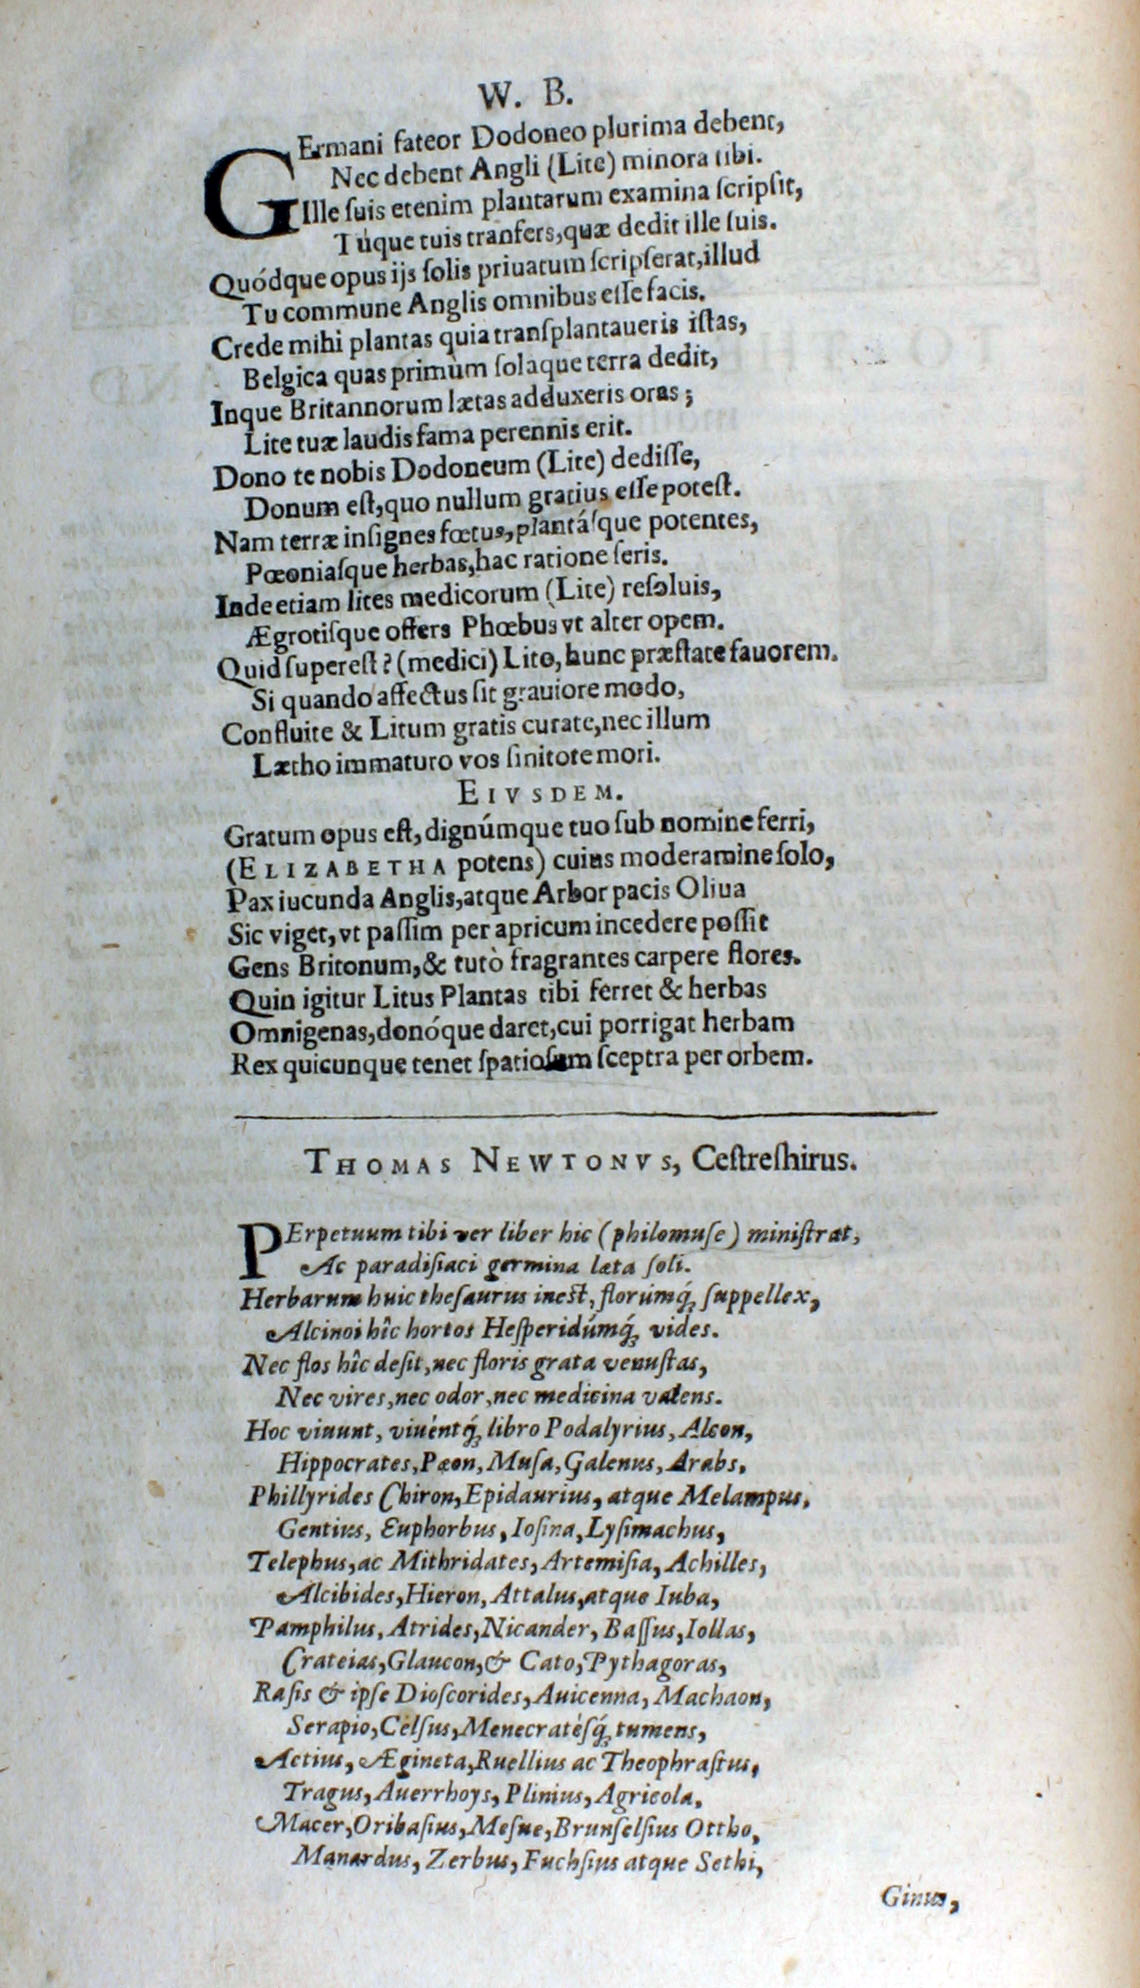 W. B.
GErmani fateor Dodoneo plurima debent,
Nec debent Angli (Lite) minora tibi.
Ille ſuis etenim plantarum examina ſcripſit,
Túque tuis tranfers, quæ dedit ille ſuis.
Quódque opus ijs ſolis priuatum ſcripſerat, illud
Tu commune Anglis omnibus eſſe facis.
Crede mihi plantas quia tranſplantaueris iſtas,
Belgica quas primùm ſoláque terra dedit,
Inque Britannorum lætas adduxeris oras;
Lite tuæ laudis fama perennis erit.
Dono te nobis Dodoneum (Lite) dediſſe,
Donum eſt, quo nullum gratius eſſe poteſt.
Nam terræ inſignes fœtus, plantáſque potentes,
Pœoniaſque herbas, hac ratione ſeris.
Inde etiam lites medicorum (Lite) reſoluis,
Ægrotiſque offers Phœbus vt alter opem.
Quid ſupereſt? (medici) Lito, hunc præſtate fauorem.
Si quando affectus ſit grauiore modo,
Confluite & Litum gratis curate, nec illum
Lætho immaturo vos ſinitote mori.
EIVSDEM.
Gratum opus eſt, dignúmque tuo ſub nomine ferri,
(ELIZABETHA potens) cuius moderamine ſolo,
Pax iucunda Anglis, atque Arbor pacis Oliua
Sic viget, vt paſſim per apricum incedere poſſit
Gens Britonum, & tutò fragrantes carpere flores.
Quin igitur Litus Plantas tibi ferret & herbas
Omnigenas, donóque daret, cui porrigat herbam
Rex quicunque tenet ſpatioſum ſceptra per orbem.
THOMAS NEWTONVS, Ceſtreſhirus.
PErpetuum tibi ver liber hic (philomuſe) miniſtrat,
Ac paradiſiaci germina læta ſoli.
Herbarum huic theſaurus ineſt, florúmq́; ſuppellex,
Alcinoi hîc hortos Heſperidúmq́; vides.
Nec flos hîc deſit, nec floris grata venuſtas,
Nec vires, nec odor, nec medicina valens.
Hoc viuunt, viuéntq́; libro Podalyrius, Alcon,
Hippocrates, Pæon, Muſa, Galenus, Arabs,
Phillyrides Chiron, Epidaurius, atque Melampus,
Gentius, Euphorbus, Ioſina, Lyſimachus,
Telephus, ac Mithridates, Artemiſia, Achilles,
Alcibides, Hieron, Attalus, atque Iuba,
Pamphilus, Atrides, Nicander, Baſſus, Iollas,
Crateias, Glaucon, & Cato, Pythagoras,
Raſis & ipſe Dioſcorides, Auicenna, Machaon,
Serapio, Celſus, Menecratéſq́; tumens,
Actius, Ægineta, Ruellius ac Theophraſtus,
Tragus, Auerrhoys, Plinius, Agricola,
Macer, Oribaſius, Meſue, Brunſelſius Ottho,
Manardus, Zerbus, Fuchſius atque Sethi,
Ginus,